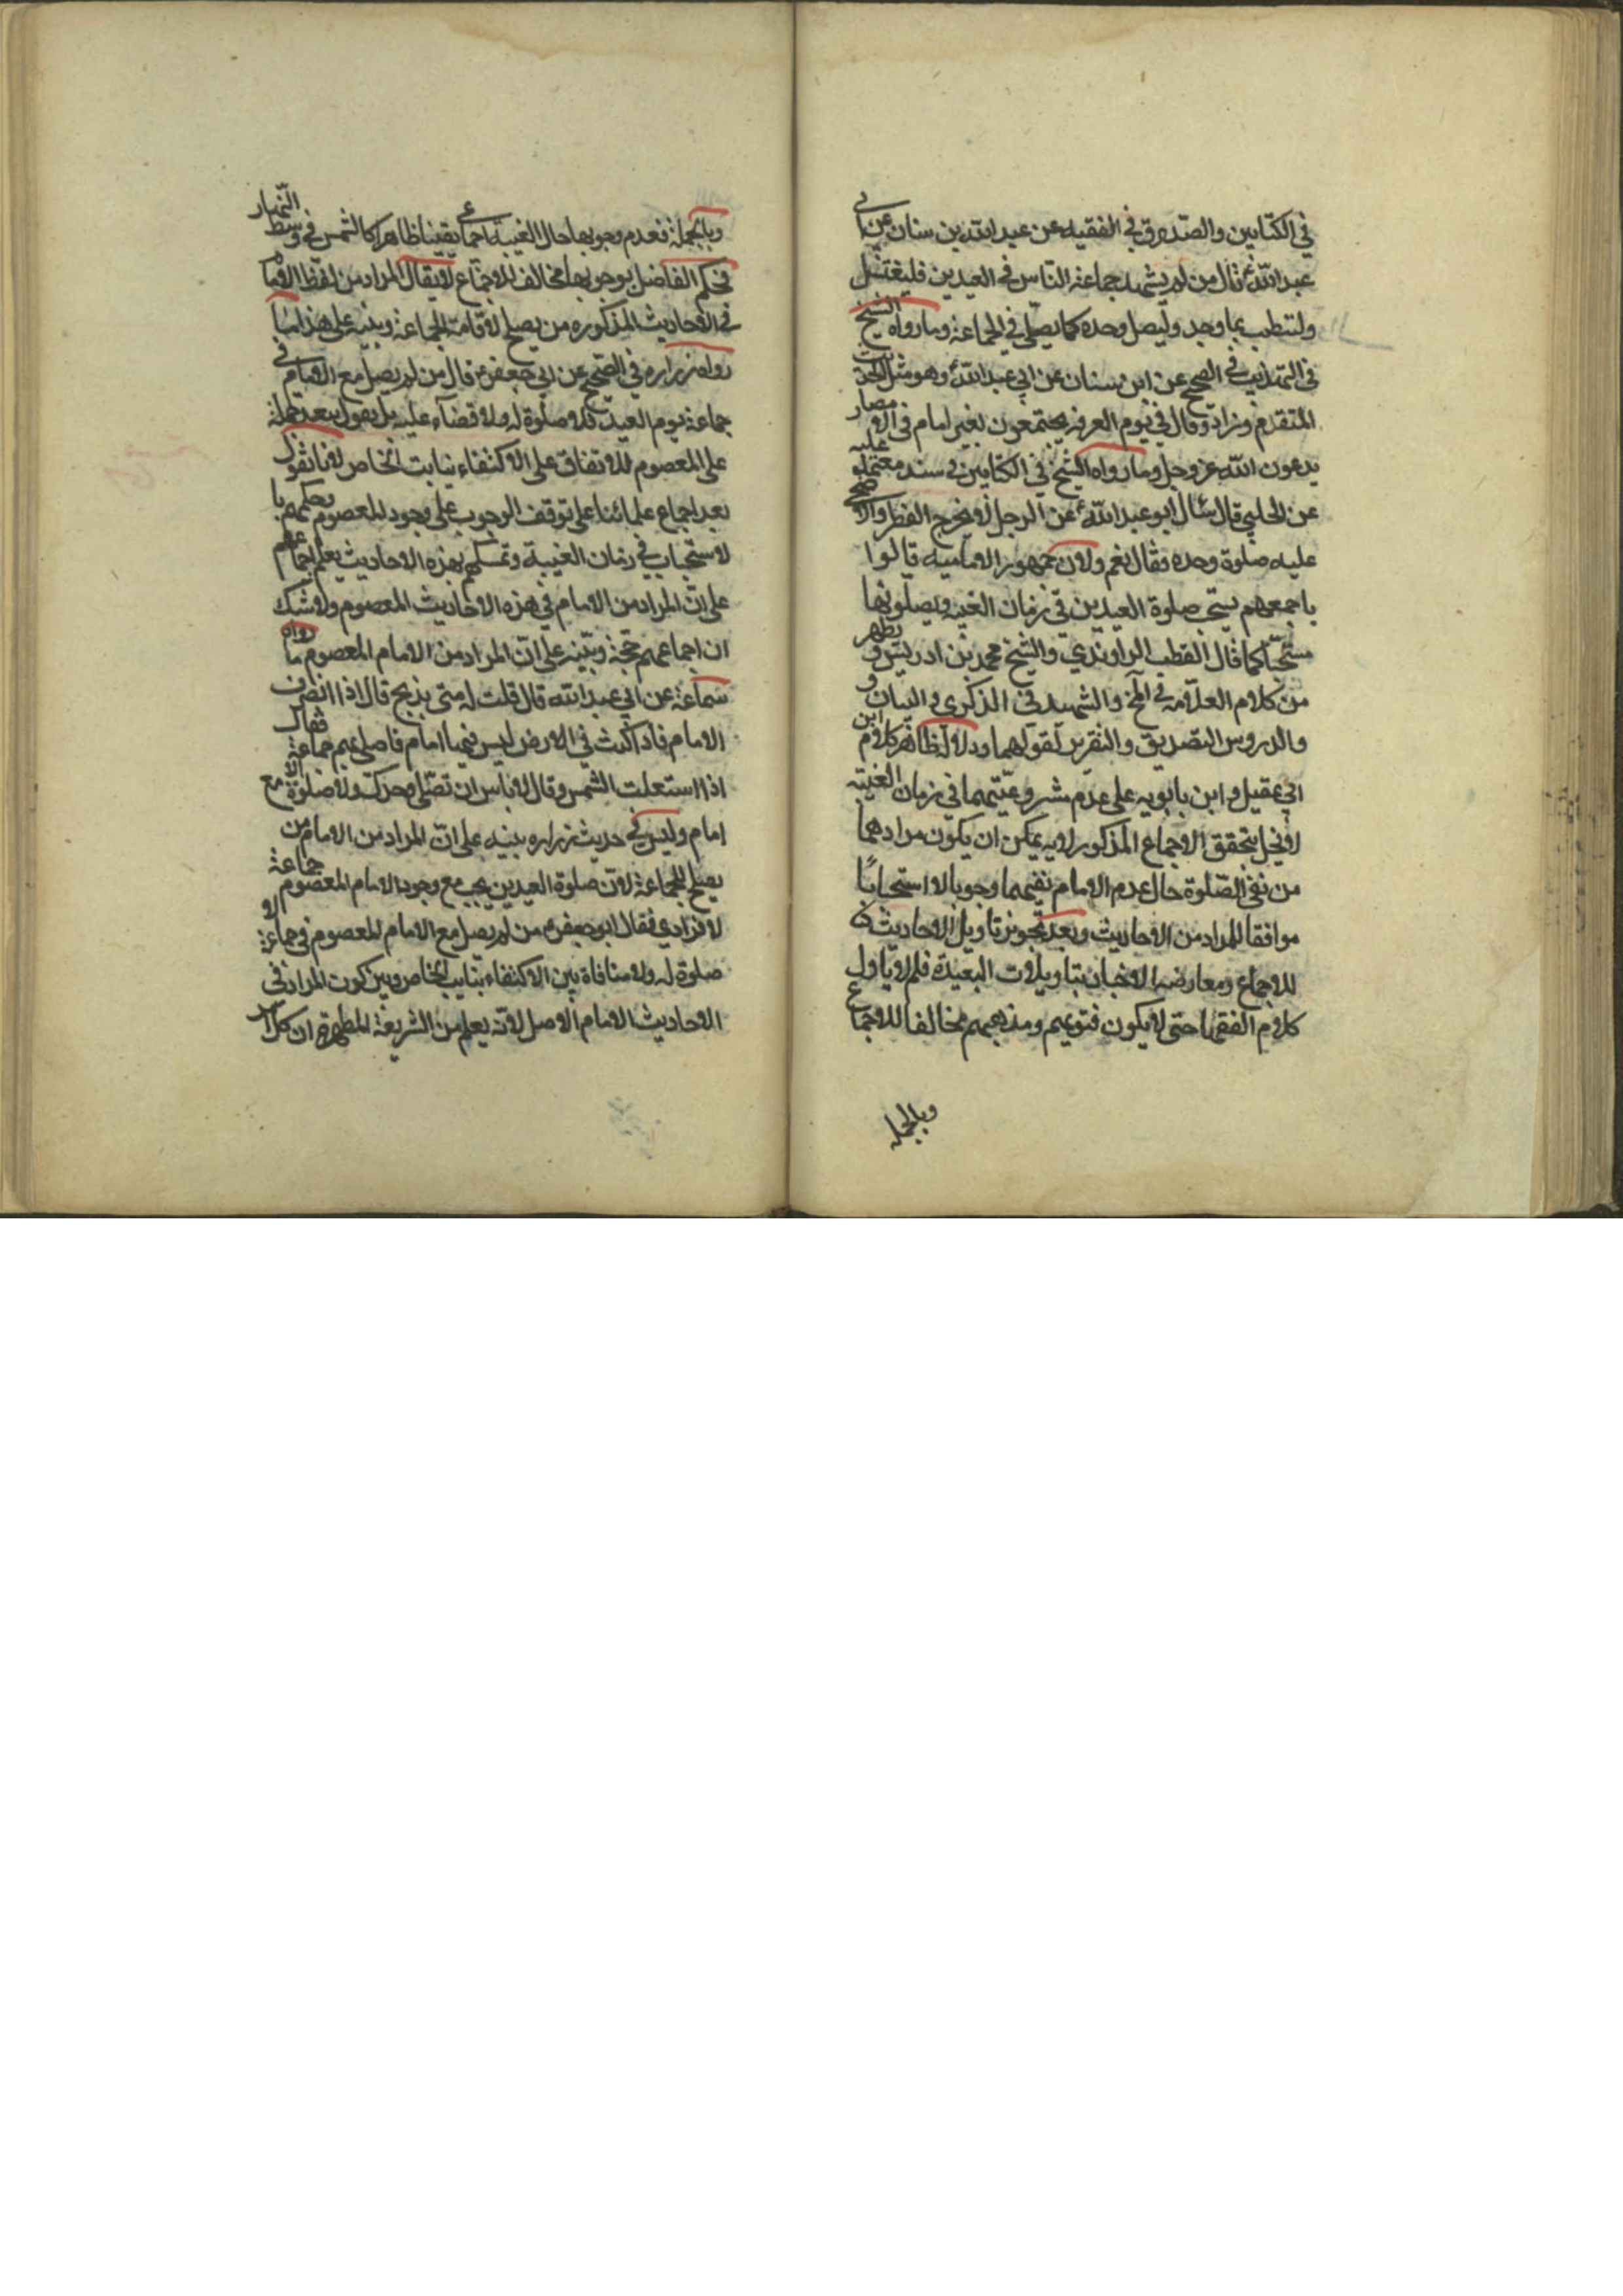 في الكتابين والصدوق في الفقيه عن عبد الله بن سنان عن ابي
عبد الله ع قال من لم يشهد جماعة الناس في العيدين فليغتسل
وليتطيب بما وجد وليصل وحده كما يصلي في الجماعة وما رواه الشيخ
في التهذيب في الصحيح عن ابن سنان عن ابي عبد الله ع وهو مثل الحديث
المتقدم وزاد وقال في يوم العرفه يجتمعون بغير امام في الامصار
يدعون الله عز وجل وما رواه الشيخ في الكتابين في سند معتمد عليه
عن الحلبي قال سئال ابو عبد الله ع عن الرجل لا يخرج الفطر والاضحي
عليه صلوة وحده فقال نعم ولان جمهور الامامية قالوا
باجمعهم يستحب صلوة العيدين في زمان الغيبه ويصلونها
مستحبا كما قال القطب الراوندي والشيخ محمد بن ادريس ويظهر
من كلام العلامه في المخ والشهيد في الذكري والبيان و
والدروس التصديق والتقرير لقولهما ودلالة ظاهر كلام ابن
ابي عقيل وابن بابويه على عدم مشروعيتهما في زمان الغيبة
لا يخل بتحقق الاجماع المذكور لانه يمكن ان يكون مرادهما
من نفي الصلوة حال عدم الامام نفيهما وجوبا لا استحبابا
موافقا للمراد من الاحاديث وبعد تجويز تاويل الاحاديث
للاجماع ومعارضه الاخبار بتاويلات البعيدة فلم لا ياول
كلام الفقها حتى لا يكون فتويهم ومذهبهم مخالفا للاجماع
وبالجمله
وبالجملة فعدم وجوبها حال الغيبة اجماعي يقينا ظاهر كالشمس في وسط النهار
فحكم الفاضل بوجوبها مخالف للاجماع لا يقال المراد من لفظ الامام
في الاحاديث المذكوره من يصلح لاقامة الجماعة وينبه على هذا ما
رواه زراره في الصحيح عن ابي جعفر ع قال من لم يصل مع الامام في
جماعة يوم العيد فلا صلوة له ولا قضاء عليه بل يقول بعد حمله
على المعصوم للاتفاق على الاكتفاء بنايب الخاص لانا نقول
بعد اجماع علمائنا على توقف الوجوب على وجود المعصوم وحكمهم با
لاستحباب في زمان الغيبة وتمسكهم بهذه الاحاديث يعلم اجماعهم
على ان المراد من الامام في هذه الاحاديث المعصوم ولا شك
ان اجماعهم حجة وينبه على ان المراد من الامام المعصوم ما رواه
سماعة عن ابي عبد الله قال قلت له متى يذبح قال اذا انصرف
الامام فاذا كنت في الارض ليس فيها امام فاصلي بهم جماعة فقال
اذا استعلت الشمس وقال لا باس ان تصلي وحدك ولا صلوة الا مع
امام وليس في حديث زراره بينه على ان المراد من الامام من
يصلح للجماعة لان صلوة العيدين يجب مع وجود الامام المعصوم جماعة
لا فرادي فقال ابو جعفر ع من لم يصل مع الامام المعصوم في جماعة لا
صلوة له ولا منافاة بين الاكتفاء بنايب الخاص وبين كون المراد في
الاحاديث الامام الاصل لانه يعلم من الشريعة المطهرة ان كل